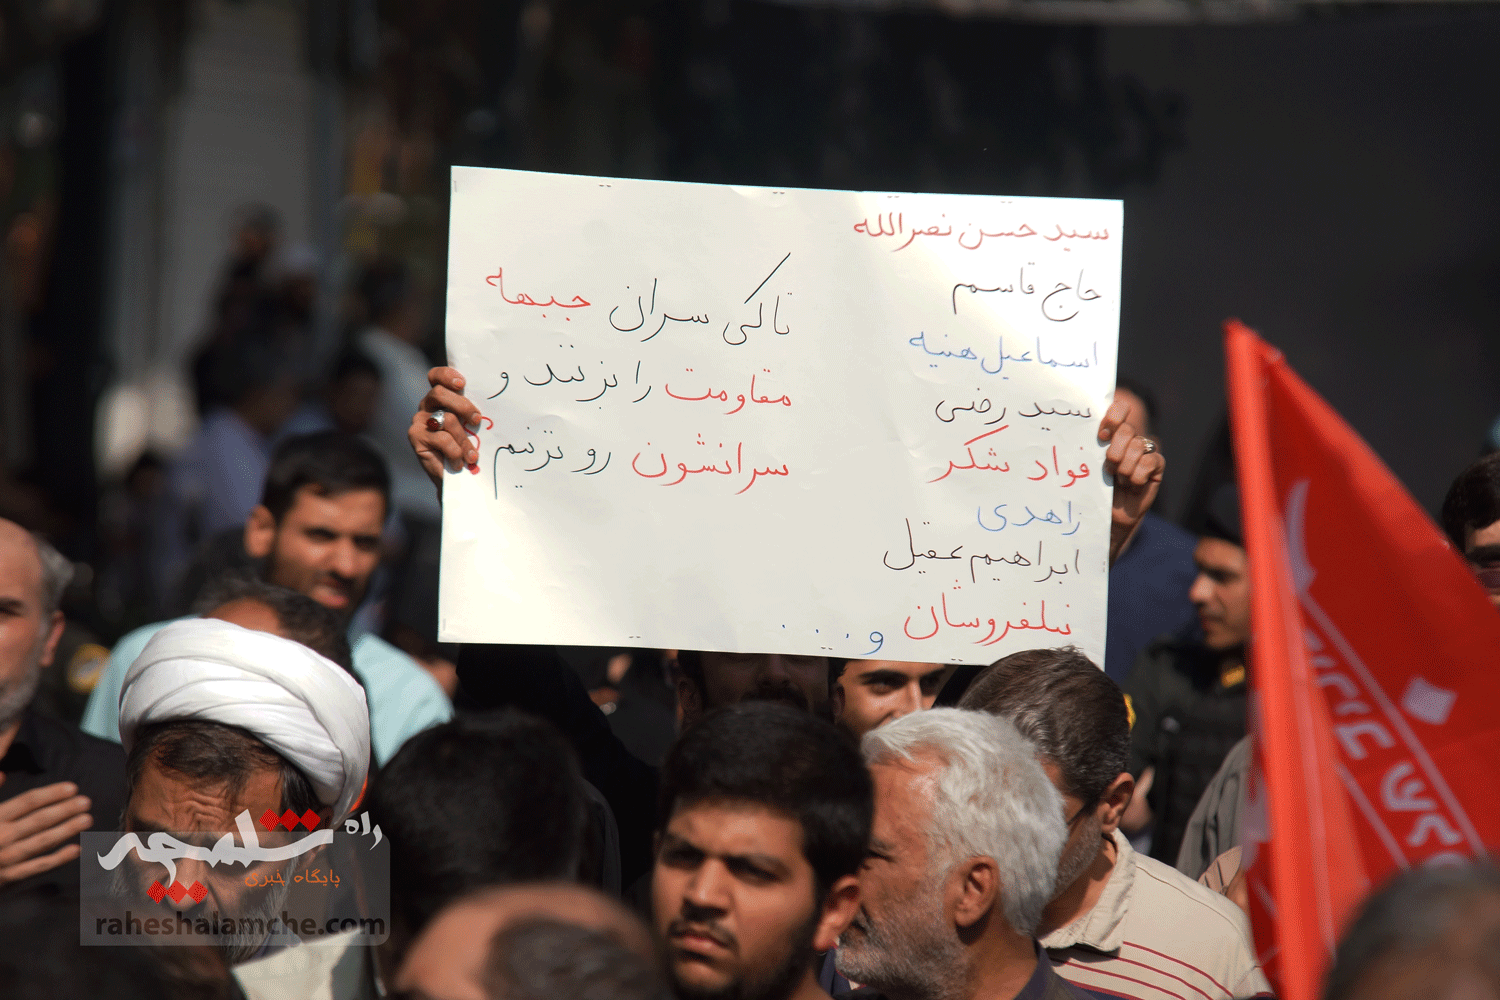 سید حسن نصرالله
حاج قاسم
اسماعیل هنیه
سید رضی
فواد شکر
زاهدی
ابراهیم عقیل
نیلفروشان
و....
تا کی سران جبهه
مقاومت را بزنند و
سرانشون رو نزنیم؟
راه شلمچه
پایگاه خبری
raheshalamche.com